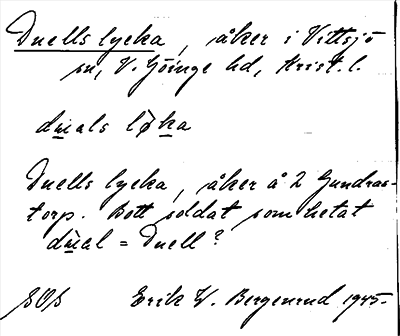 Duells lycka, åker i Vittsjö
sn, V. Göinge hd, Krist. l.
dṳals lø̠ka
Duells lycka, åker å 2 Gundras-
torp. Bott soldat som hetat
dṳ̀al = Duell?
SOS Erik W. Bergenrud 1945.